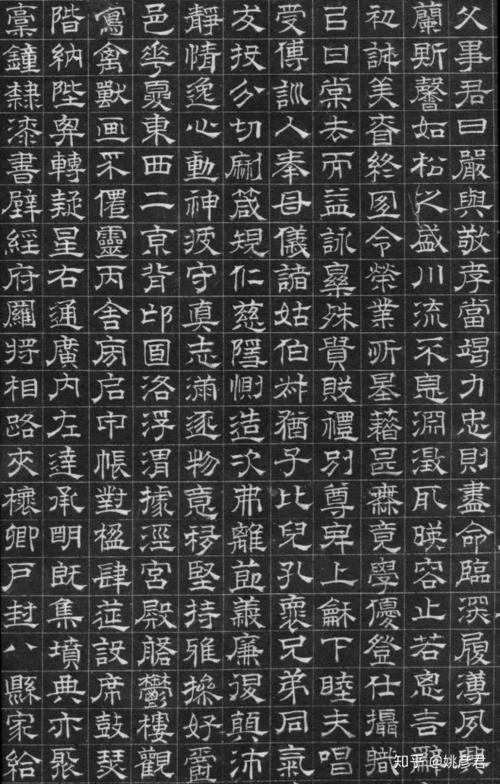 父事君曰嚴與敬孝當竭力忠則盡命臨深履薄夙興
蘭斯馨如松之盛川流不息淵澂取暎容止若思言辭
初誠美昚終宜令榮業所基藉甚無竟學優登仕攝職
㠯甘棠去而益詠樂殊貴賤禮別尊卑上龢下睦夫唱
受傅訓入奉母儀諸姑伯叔猶子比兒孔褱兄弟同氣
友投分切磨箴規仁慈隱惻造次弗離節義廉退顛沛
靜情逸心動神疲守真志滿逐物意移堅持雅操好爵
邑華夏東西二京背邙面洛浮渭據涇宮殿盤鬱樓觀
寫禽獸画采僊靈丙舍傍启甲帳對楹肆筵設席鼓瑟
階納陛弁轉疑星右通廣內左達承明既集墳典亦聚
稾鐘隸漆書壁經府羅將相路夾槐卿戶封八縣家給
知乎 @姚彦君